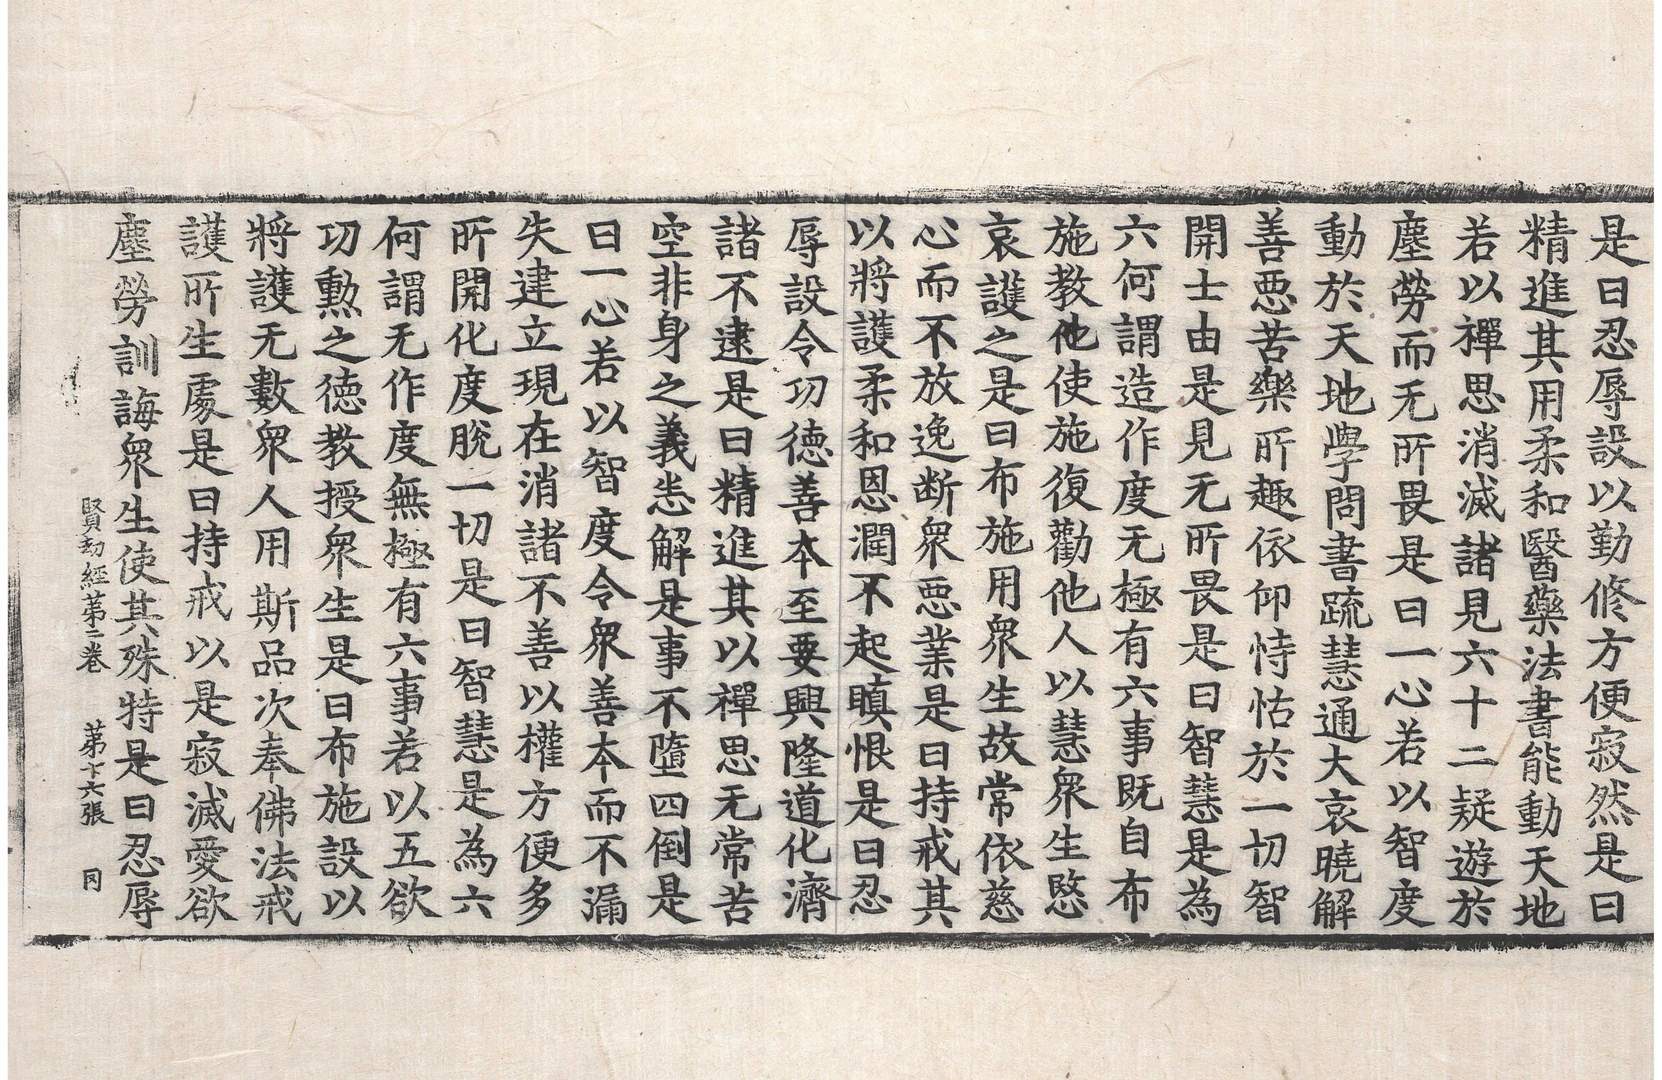 是曰忍辱設以勤修方便寂然是曰
精進其用柔和醫藥法書能動天地
若以禪思消滅諸見六十二疑遊於
塵勞而无所畏是曰一心若以智度
動於天地學問書疏慧通大哀曉解
善惡苦樂所趣依仰恃怙於一切智
開士由是見无所畏是曰智慧是為
六何謂造作度无極有六事既自布
施教他使施復勸他人以慧衆生愍
哀護之是曰布施用衆生故常依慈
心而不放逸断衆惡業是曰持戒其
以將護柔和恩潤不起瞋恨是曰忍
辱設令功德善本至要興隆道化濟
諸不逮是曰精進其以禪思无常苦
空非身之義悉解是事不墮四倒是
曰一心若以智度令衆善本而不漏
失建立現在消諸不善以權方便多
所開化度脫一切是曰智慧是為六
何謂无作度無極有六事若以五欲
功勲之德教授衆生是曰布施設以
將護无數衆人用斯品次奉佛法戒
護所生處是曰持戒以是寂滅愛欲
塵勞訓誨衆生使其殊特是曰忍辱
賢劫經第二卷 第十六張 同